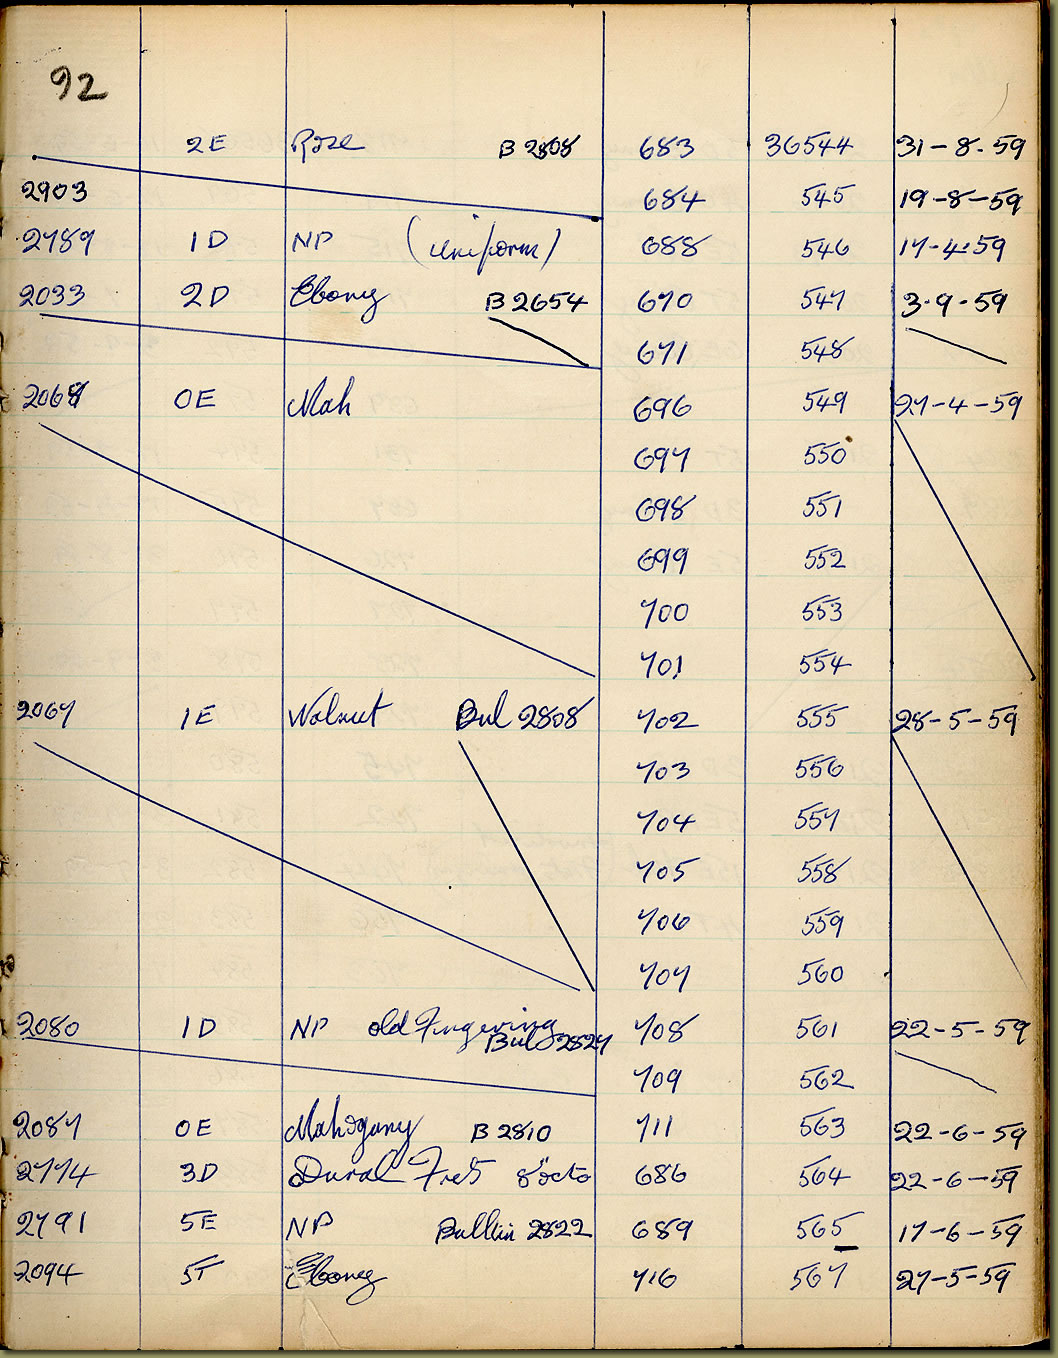 92
2E Rose B 2808 683 36544 31-8-59
2903 684 545 19-8-59
2789 1D NP (uniform) 688 546 17-4-59
2033 2D Ebony B 2654 670 547 3-9-59
671 548
2068 0E Mah 696 549 27-4-59
697 550
698 551
699 552
700 553
701 554
2067 1E Walnut Bul 2808 702 555 28-5-59
703 556
704 557
705 558
706 559
707 560
2080 1D NP old Fingering 708 561 22-5-59
Bul 2827
709 562
2087 0E Mahogany B 2810 711 563 22-6-59
2774 3D Dural Fret 8"octo 686 564 22-6-59
2791 5E NP Bullin 2822 689 565 17-6-59
2094 5T Ebony 716 567 27-5-59